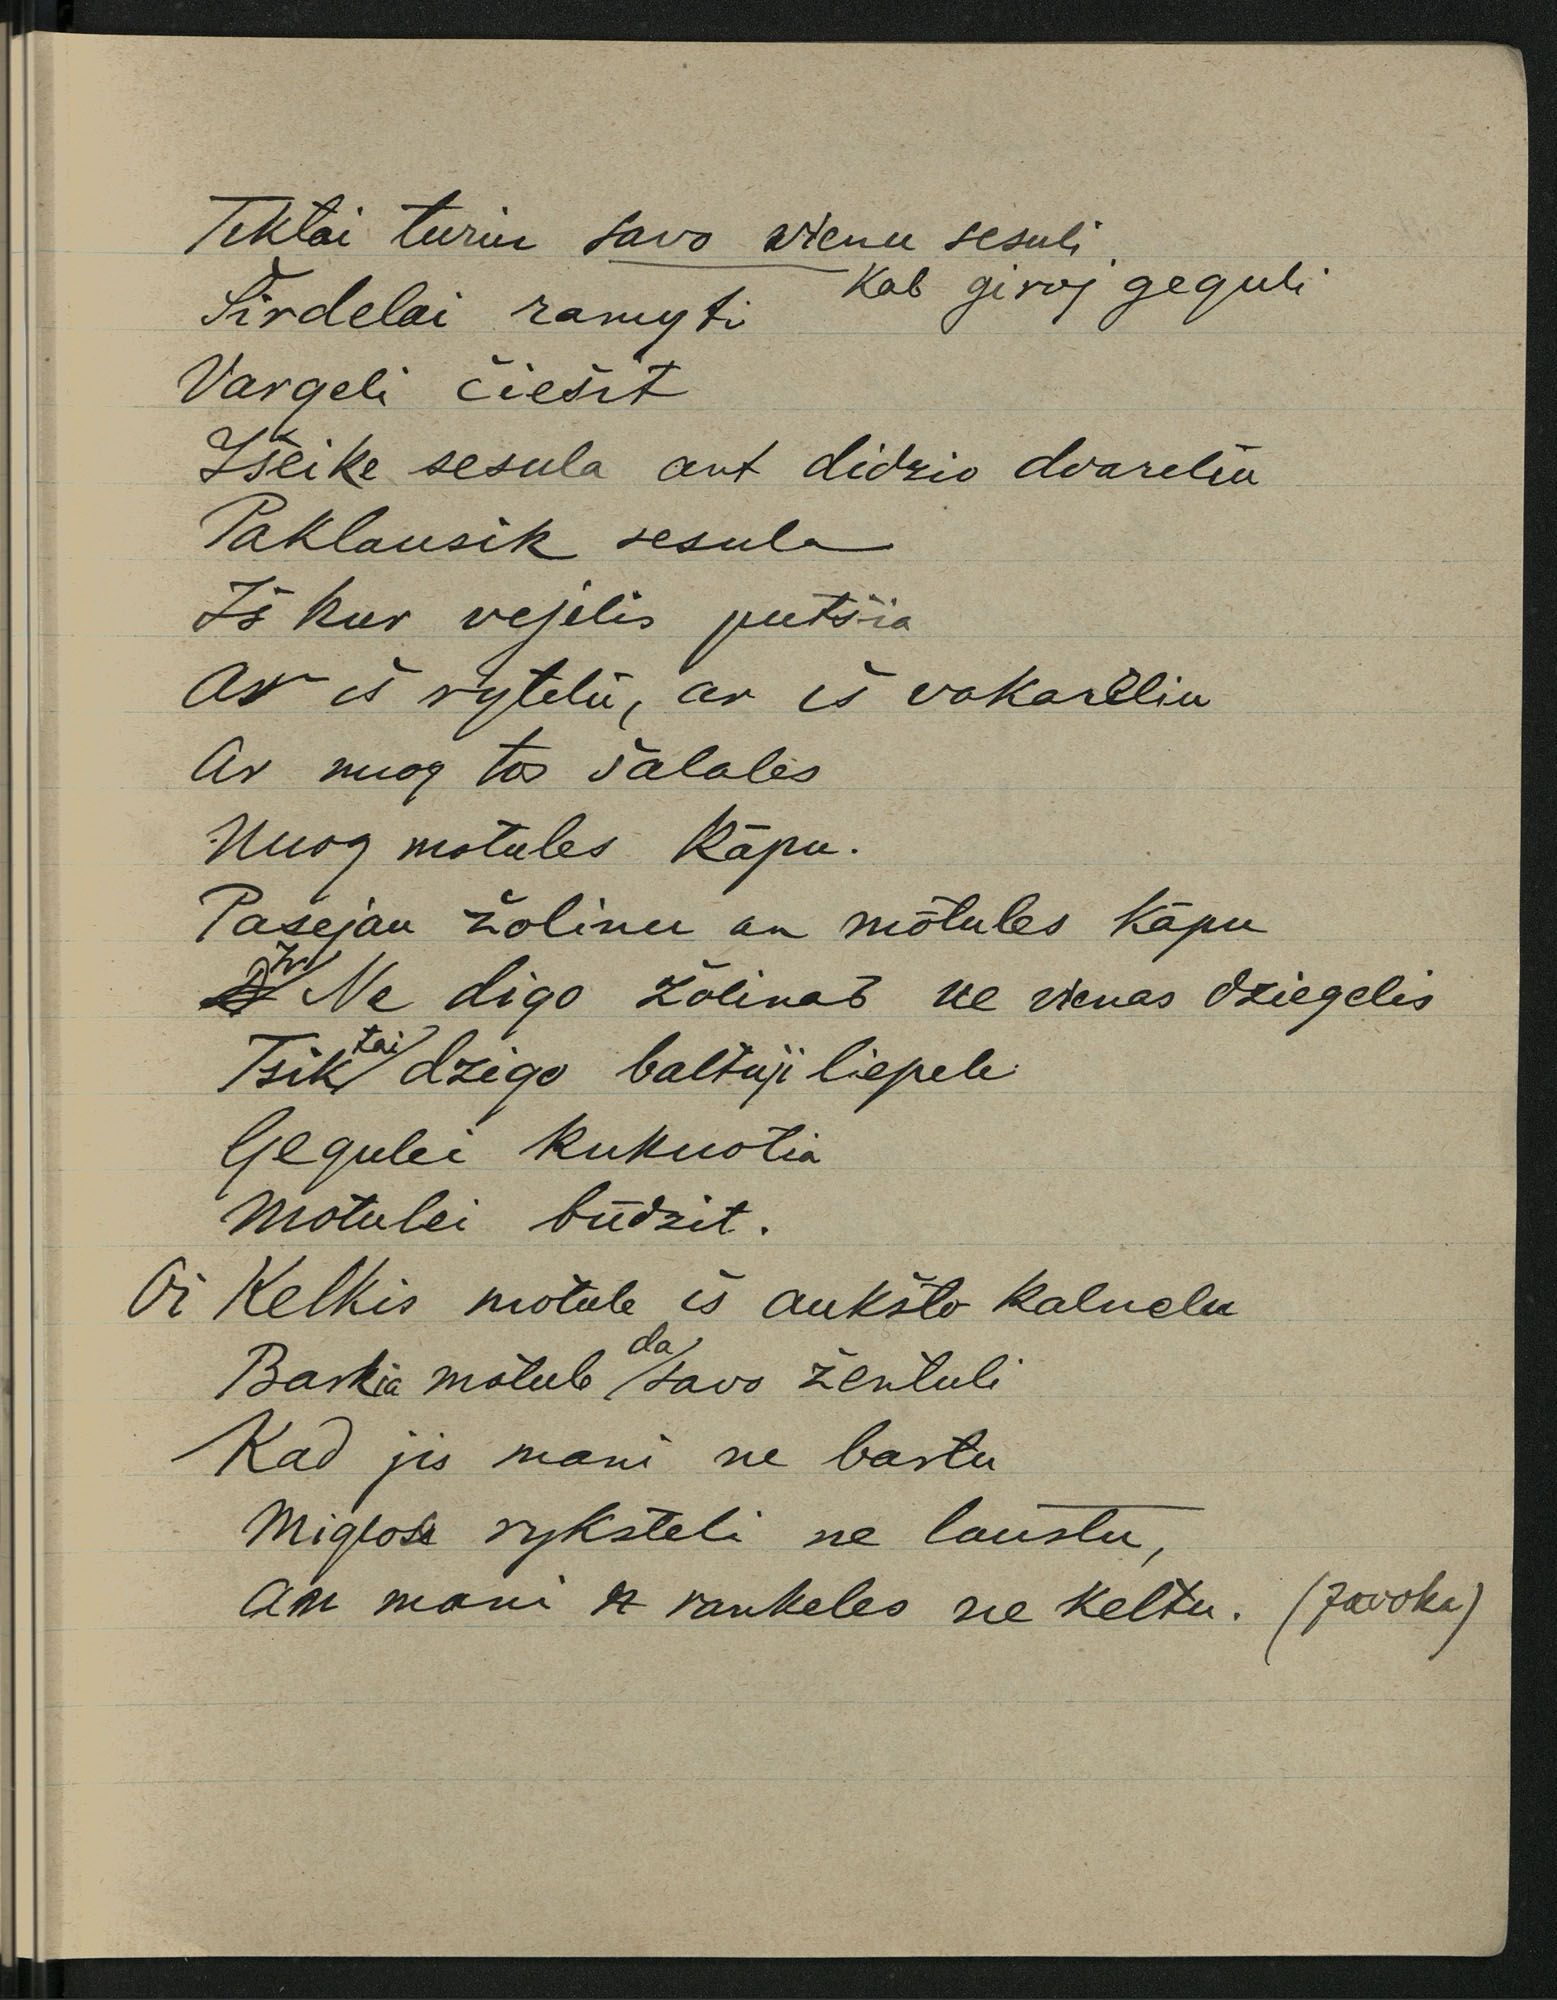 Tiktai turiu savo vienu sesuli
Kab giroj geguli
Širdelai ramyti
Vargeli čiešit
Išeike sesula ant didzio dvareliu
Paklausik sesula
Iš kur vejelis putšia
Ar iš ryteliu, ar iš vakareliu
Ar nuog tos šalales
Nuog motules kāpu.
Pasejau žolinu an mōtules kāpu
Ir Ne digo žolinas ne vienas dziegelis
Tsiktai dzigo baltuji liepele
Gegulei kukuotia
Motulei būdzit.
Oi Kelkis motule iš aukšto kalnelu
Barkia motule da savo žentuli
Kad jis mani ne bartu
Miglosu ryksteli ne laustu,
An mani rankeles ne keltu. (Javoka)